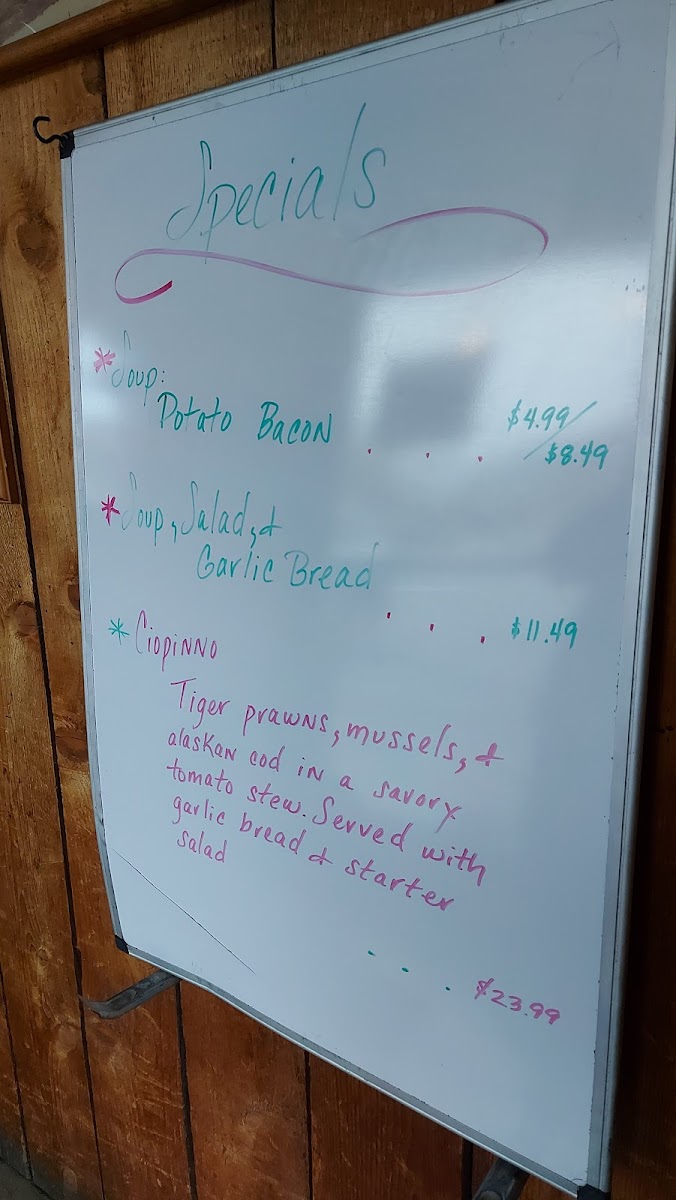 Specials
* Soup:
Potato Bacon . . . $4.99/
$8.49
* Soup, Salad, &
Garlic Bread
. . . $11.49
* Ciopinno
Tiger prawns, mussels, &
alaskan cod in a savory
tomato stew. Served with
garlic bread & starter
salad
. . . $23.99